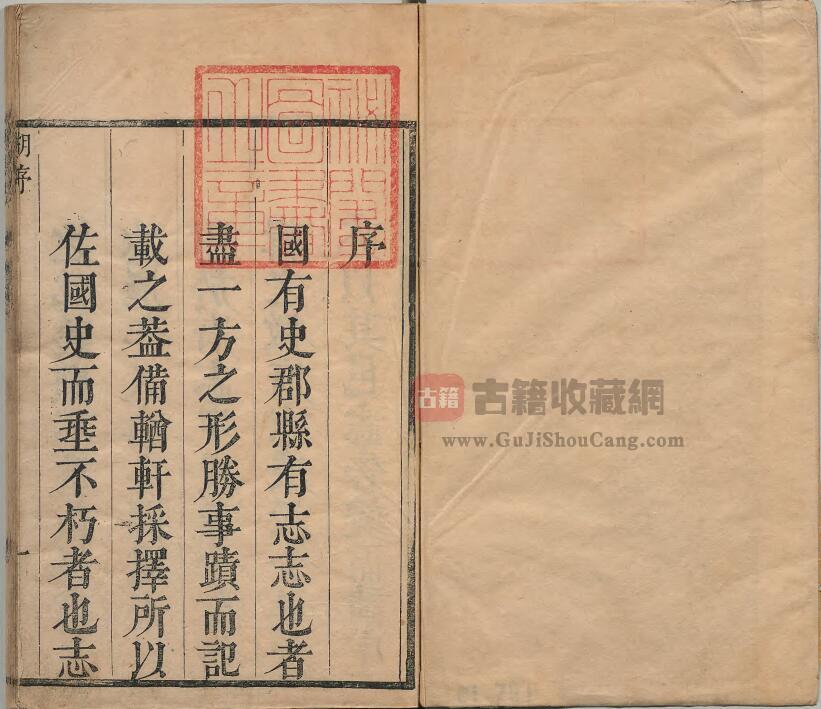 祕閣
圖書
之章
序
國有史郡縣有志志也者
盡一方之形勝事蹟而記
載之葢備輶軒採擇所以
佐國史而垂不朽者也志
胡序
一
古籍
古籍收藏網
www.GuJiShouCang.com